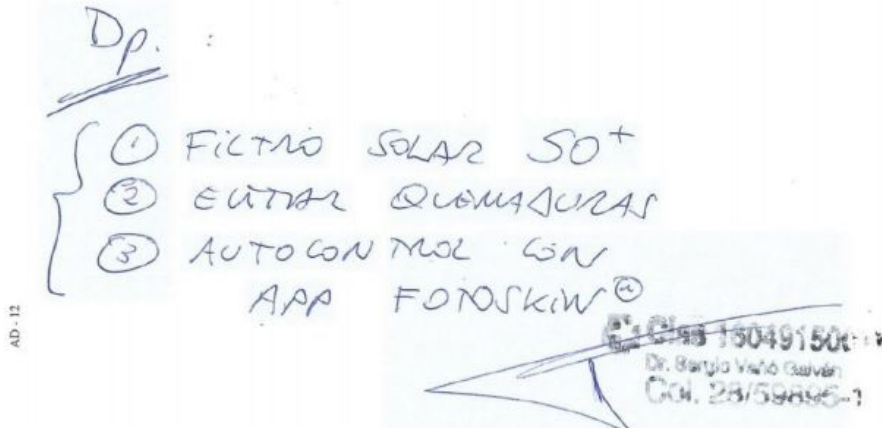 Dp. :
① FILTRO SOLAR 50+
② EVITAR QUEMADURAS
③ AUTOCONTROL CON
APP FOTOSKIN®
AD - 12
Dr. Sergio Vañó Galván
Col. 28/59895-1